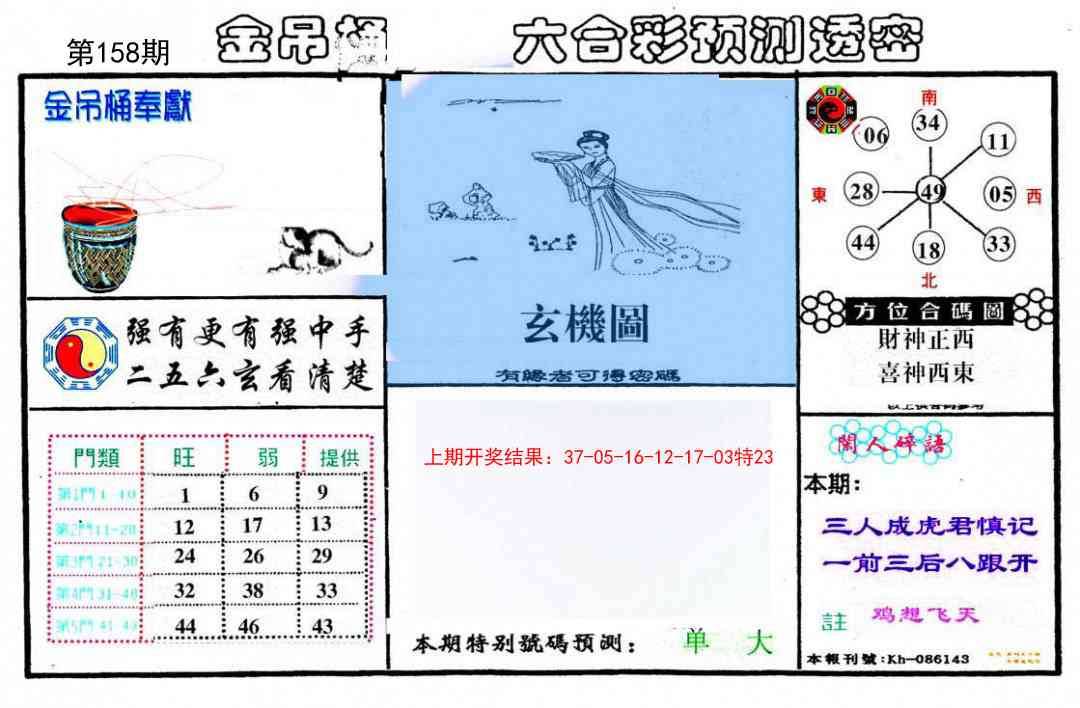 第158期
金吊桶
六合彩预测透密
金吊桶奉獻
强有更有强中手
二五六玄看清楚
門類 旺 弱 提供
第1門1-10 1 6 9
第2門11-20 12 17 13
第3門21-30 24 26 29
第4門31-40 32 38 33
第5門41-49 44 46 43
玄機圖
有緣者可得密碼
上期开奖结果：37-05-16-12-17-03特23
本期特别號碼预测： 单 大
南
06 34 11
東 28 49 05 西
44 18 33
北
方位合碼圖
財神正西
喜神西東
閑人碎語
本期：
三人成虎君慎记
一前三后八跟开
註 鸡想飞天
本報刊號:Kh-086143